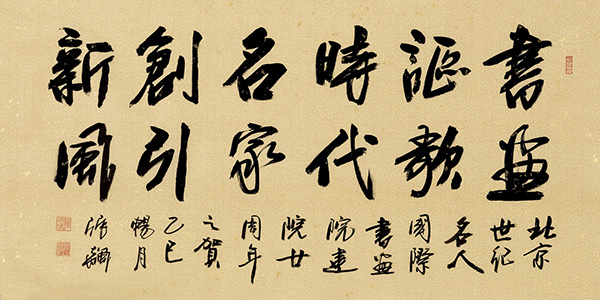 書畫
謳歌
時代
名家
創引
新風
北京
世紀
名人
國際
書畫
院建
院廿
周年
之賀
乙巳
暢月